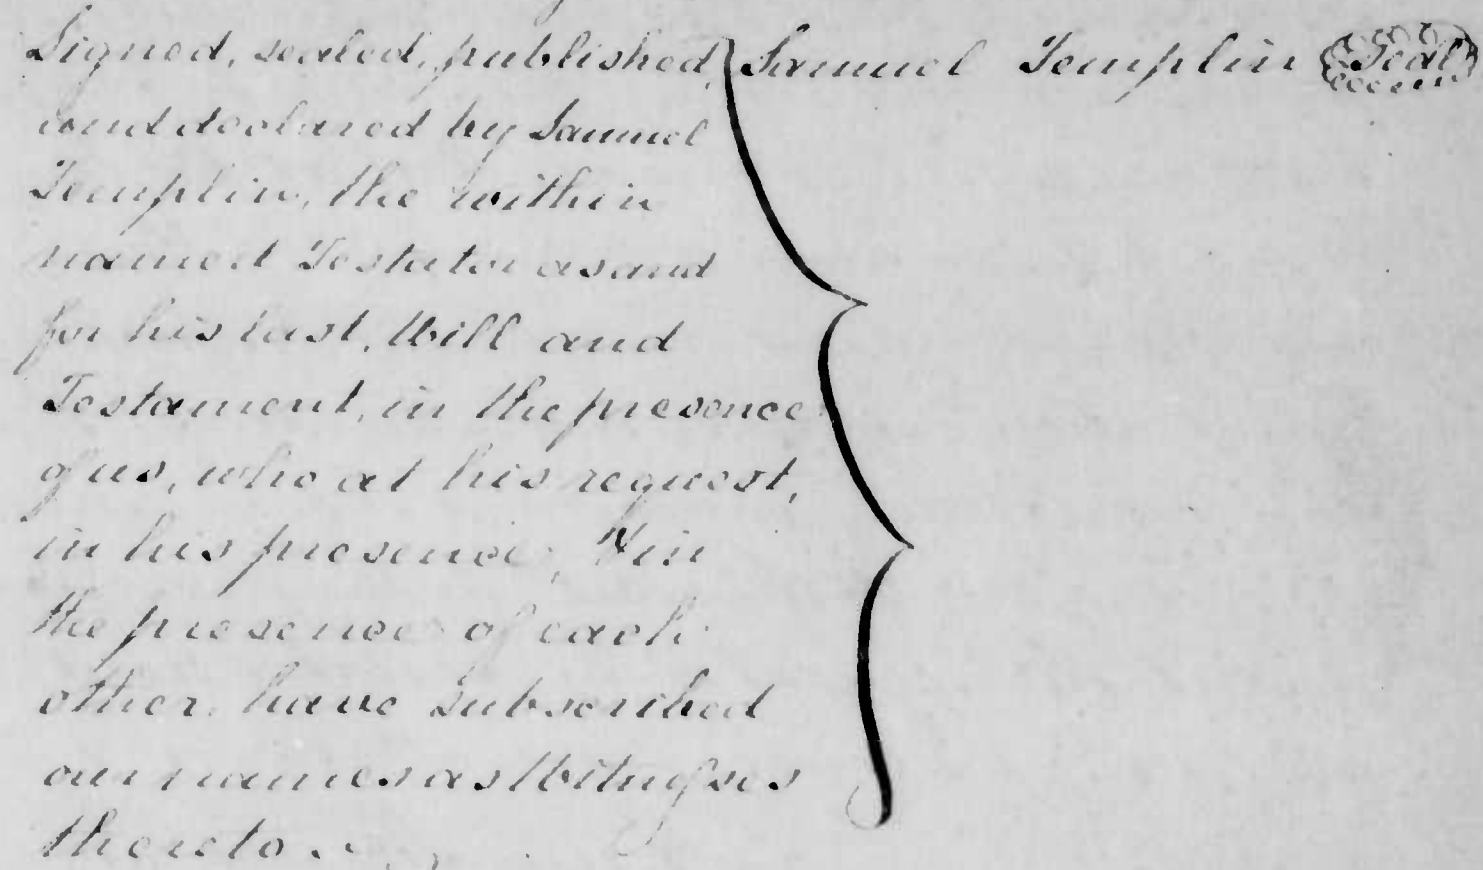 Signed, sealed, published, Samuel Templin Seal
and declared by Samuel
Templin, the within
named Testator as and
for his last, Will and
Testament, in the presence
of us, who at his request,
in his presence, & in
the presence of each
other, have subscribed
our names as Witnesses
thereto.